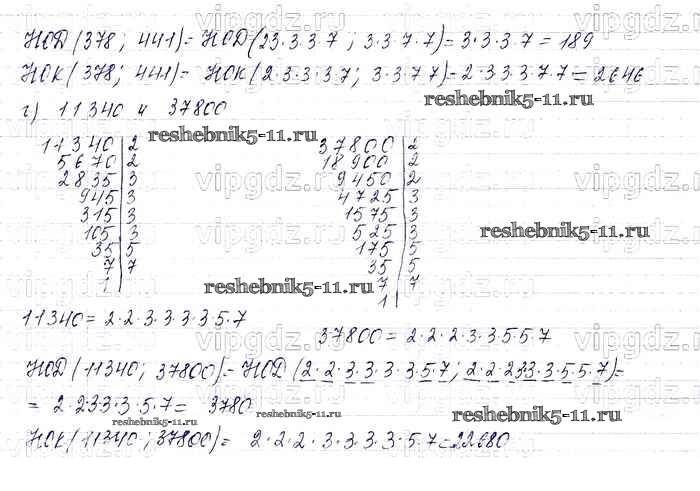 НОД (378; 441)= НОД(2·3·3·3·7; 3·3·7·7)= 3·3·3·7 = 189
НОК (378; 441)= НОК(2·3·3·3·7; 3·3·7·7)=2·3·3·3·7·7=2646
reshebnik5-11.ru
г) 11340 и 37800
reshebnik5-11.ru
11340|2 37800|2
5670|2 18900|2
2835|3 9450|2
945|3 4725|3
315|3 1575|3
105|3 525|3
35|5 175|5
7|7 35|5
1| 7|7
1|
reshebnik5-11.ru
reshebnik5-11.ru
11340= 2·2·3·3·3·3·5·7
37800= 2·2·2·3·3·5·5·7
НОД (11340; 37800)= НОД (2·2·3·3·3·3·5·7; 2·2·2·3·3·3·5·5·7)=
= 2·2·3·3·3·5·7= 3780
reshebnik5-11.ru
reshebnik5-11.ru
reshebnik5-11.ru
НОК (11340; 37800)= 2·2·2·3·3·3·3·5·7=22680
vipgdz.ru
vipgdz.ru
vipgdz.ru